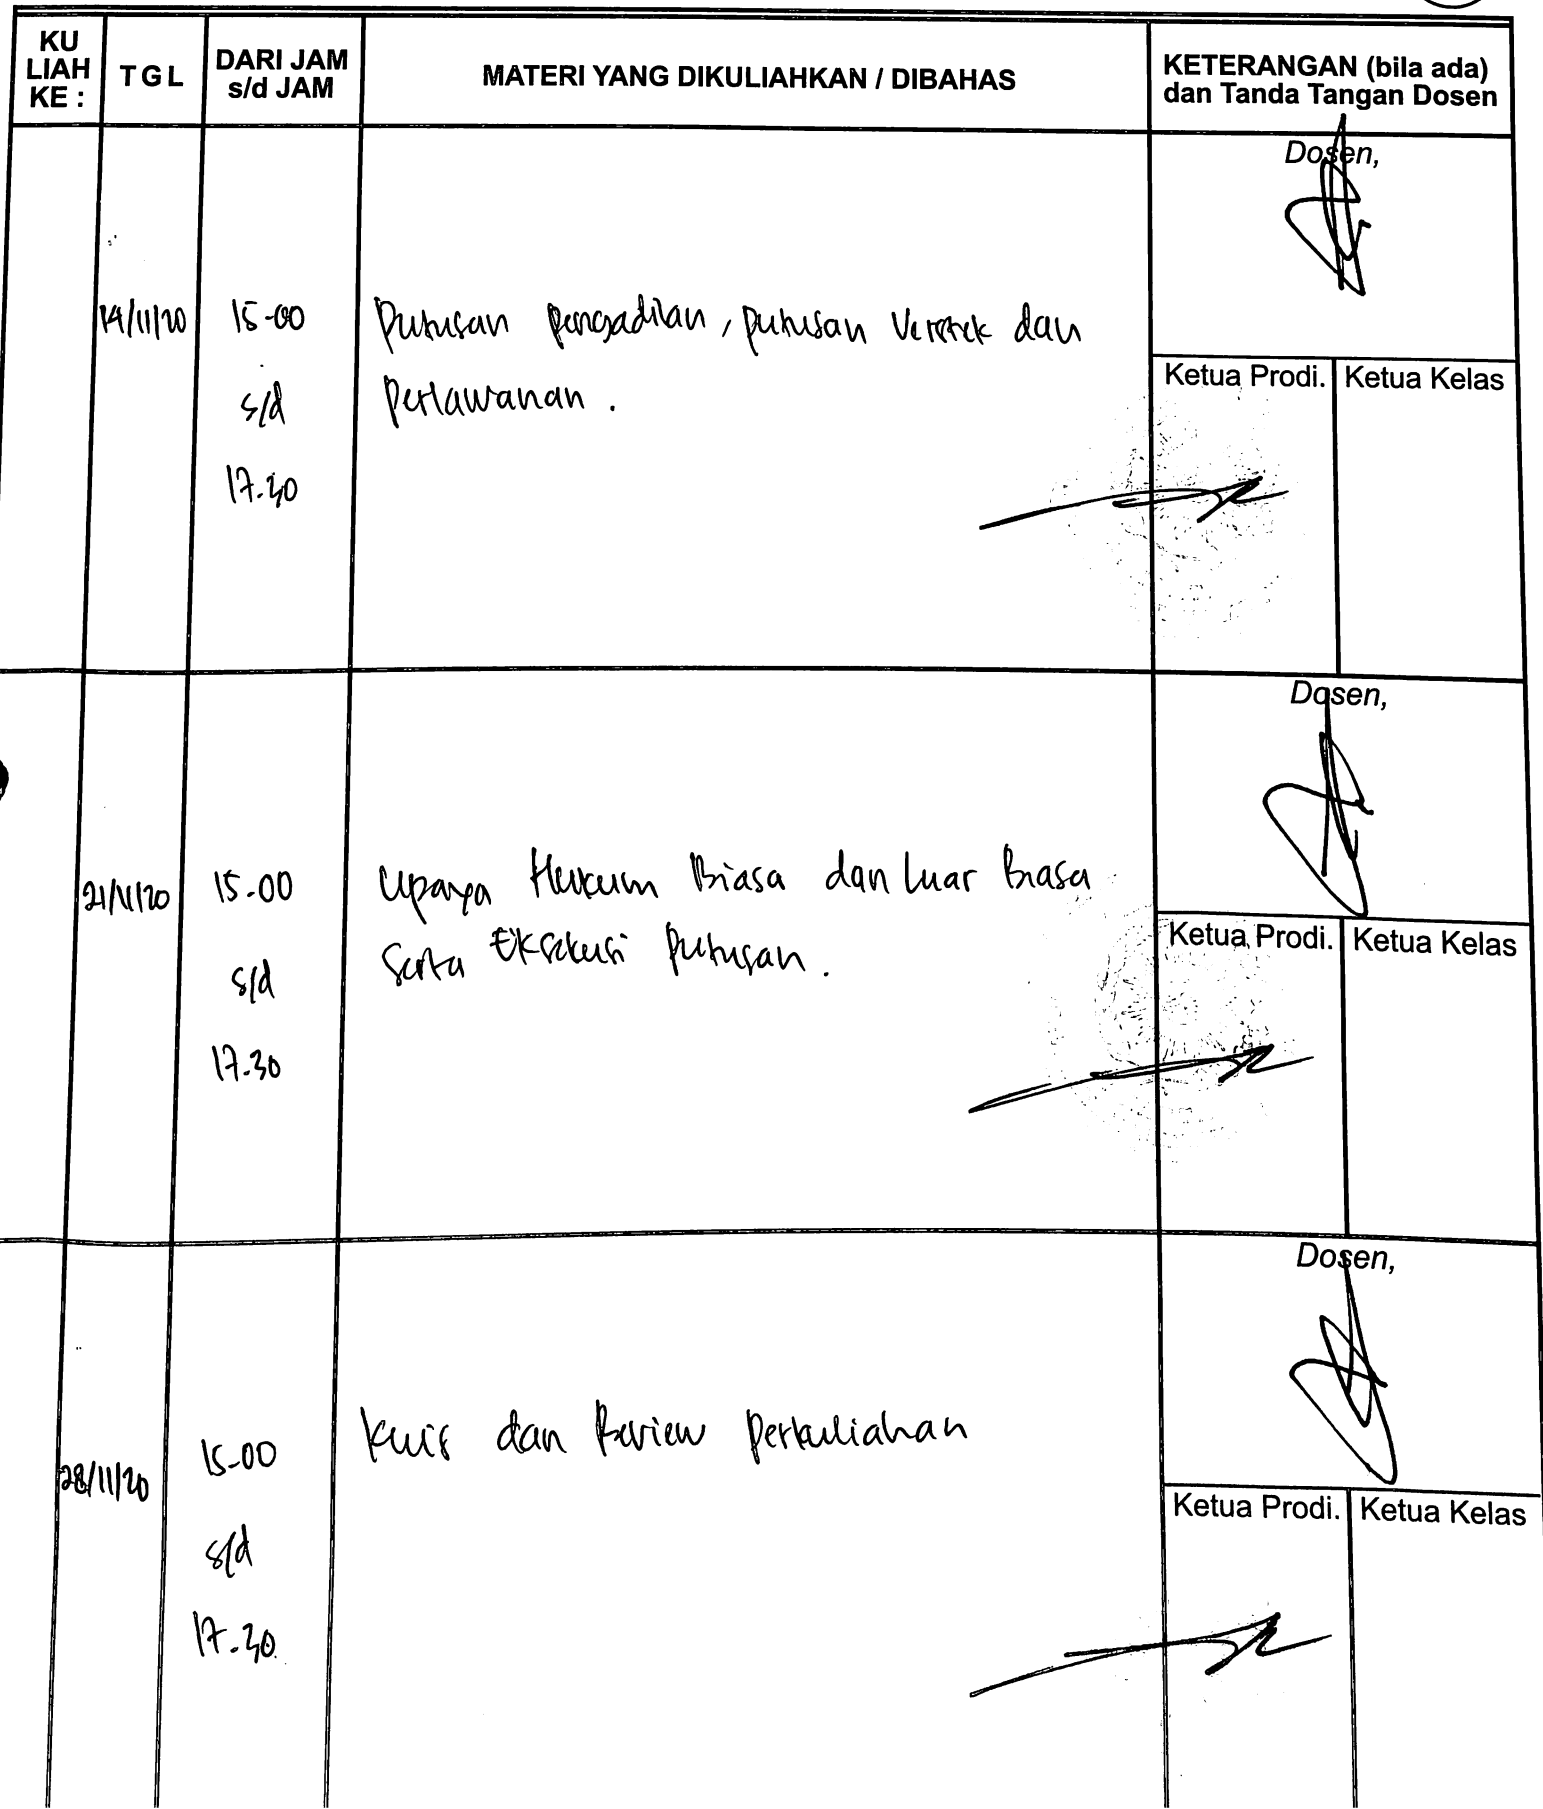 KU
LIAH
KE :
TGL
DARI JAM
s/d JAM
MATERI YANG DIKULIAHKAN / DIBAHAS
KETERANGAN (bila ada)
dan Tanda Tangan Dosen
Dosen,
14/11/20
15-00
s/d
17.30
Putusan pengadilan, putusan Verstek dan
Perlawanan.
Ketua Prodi.
Ketua Kelas
Dosen,
21/11/20
15.00
s/d
17.30
Upaya Hukum Biasa dan luar Biasa
Serta Eksekusi Putusan.
Ketua Prodi.
Ketua Kelas
Dosen,
28/11/20
15-00
s/d
17.30
Kuis dan Review Perkuliahan
Ketua Prodi.
Ketua Kelas